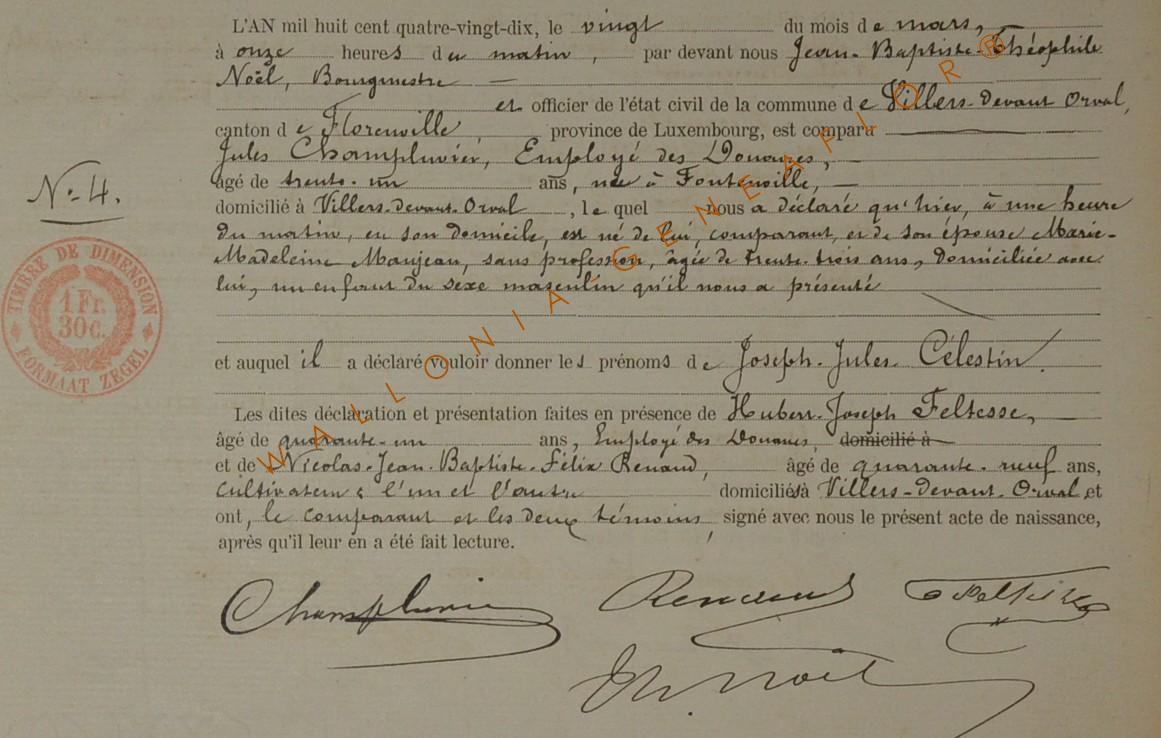 L'AN mil huit cent quatre-vingt-dix, le vingt du mois de mars,
à onze heures du matin, par devant nous Jean-Baptiste-Théophile
Noël, Bourgmestre
et officier de l'état civil de la commune de Villers-devant Orval,
canton de Florenville, province de Luxembourg, est comparu
Jules Champluvier, Employé des Douanes,
N° 4.
âgé de trente-un ans, né à Fontenoille,
domicilié à Villers-devant-Orval, lequel nous a déclaré qu'hier, à une heure
du matin, en son domicile, est né de lui, comparant, et de son épouse Marie-
Madeleine Manjean, sans profession, âgée de trente-trois ans, domiciliée avec
lui, un enfant du sexe masculin qu'il nous a présenté
TIMBRE DE DIMENSION
1 Fr.
30 c.
FORMAAT ZEGEL
et auquel il a déclaré vouloir donner les prénoms de Joseph-Jules Célestin.
Les dites déclaration et présentation faites en présence de Hubert-Joseph Feltesse,
âgé de quarante-un ans, Employé des Douanes, domicilié à
et de Nicolas-Jean-Baptiste-Félix Renaud, âgé de quarante-neuf ans,
Cultivateur, l'un et l'autre domiciliés à Villers-devant-Orval et
ont, le comparant et les deux témoins, signé avec nous le présent acte de naissance,
après qu'il leur en a été fait lecture.
Champluvier Renaud Feltesse
Th. Noël
WALLONIA GENEAFLOR®